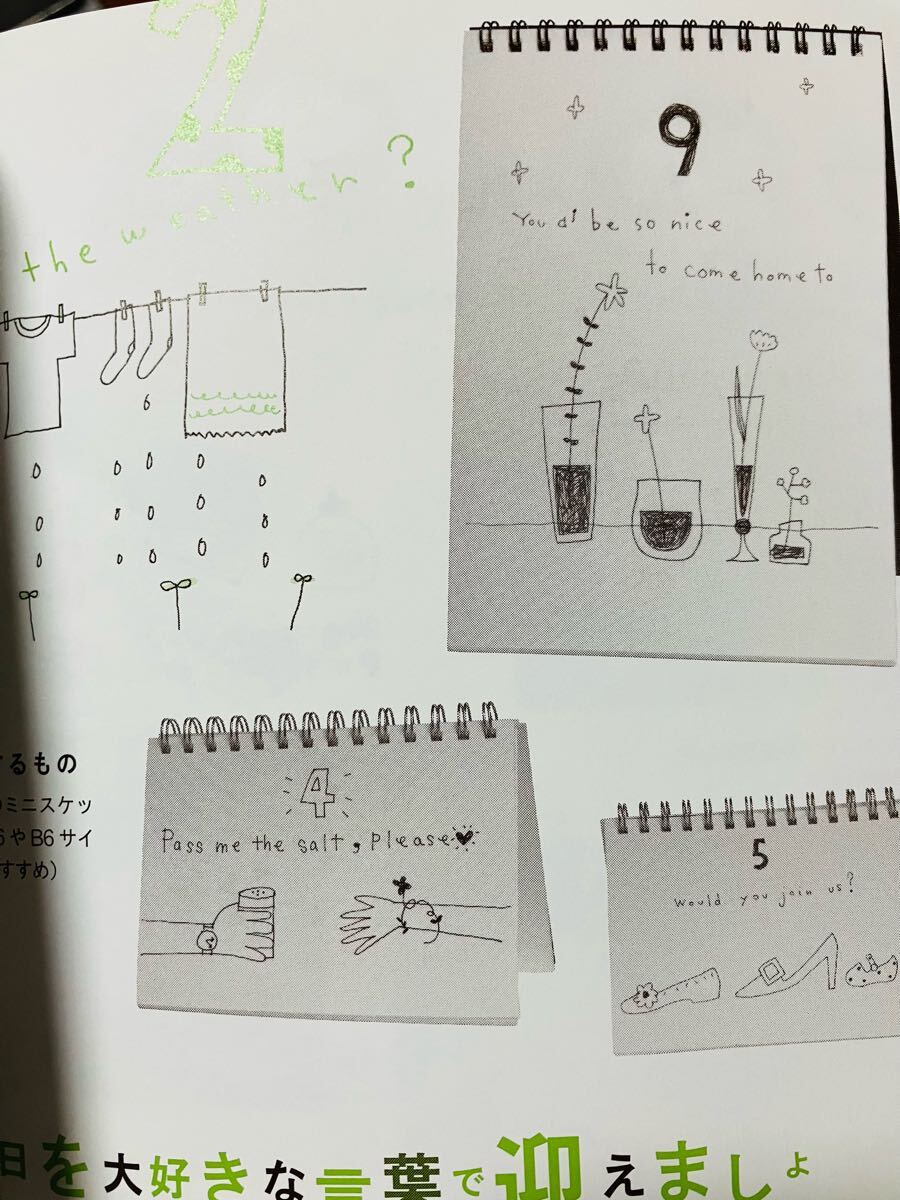 2
the weather?
9
You d' be so nice
to come home to
するもの
のミニスケッ
6やB6サイ
すすめ）
4
Pass me the salt, Please
5
Would you join us?
日を大好きな言葉で迎えましょ